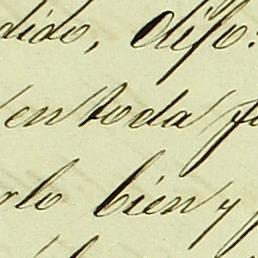 dido, dijo:
en toda f
rlo bien y